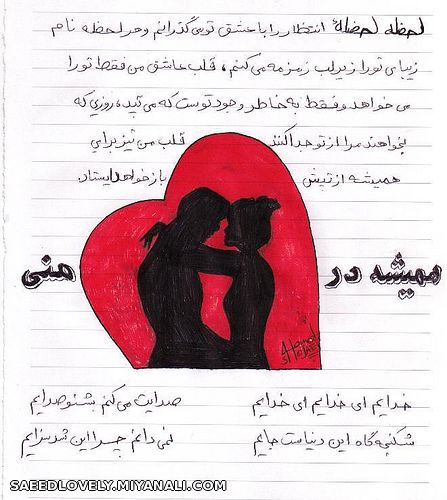 لحظه لحضلهٔ انتظار را با عشق تو می گذرانم و هر لحظه نام
زیبای تو را زیر لب زمزمه می کنم، قلب عاشق من فقط تو را
می خواهد و فقط به خاطر وجود توست که می تپد، روزی که
بخواهند مرا از تو جدا کنند قلب من نیز برای
همیشه از تپش باز خواهد ایستاد.
همیشه در منی
خدایم ای خدایم ای خدایم صدایت می کنم بشنو صدایم
شکنجه گاه این دنیاست جایم نمی دانم چرا این شد سزایم
SAEEDLOVELY.MIYANALI.COM